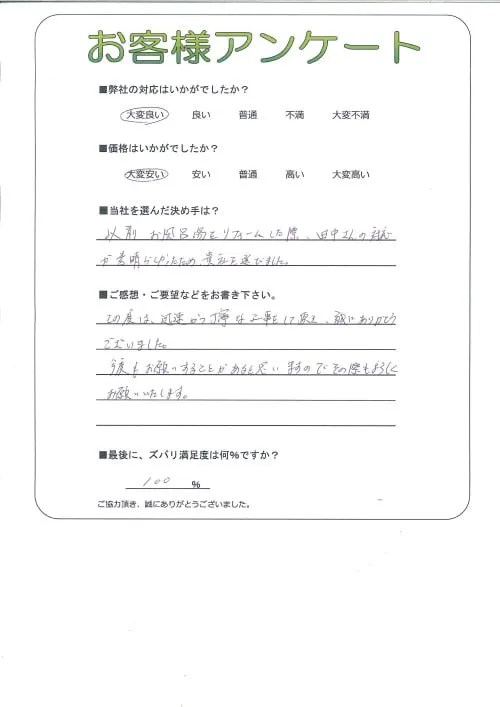 お客様アンケート
■弊社の対応はいかがでしたか？
大変良い 良い 普通 不満 大変不満
■価格はいかがでしたか？
大変安い 安い 普通 高い 大変高い
■当社を選んだ決め手は？
以前 お風呂場をリフォームした際、田中さんの対応
が素晴らしかったため、貴社を選びました。
■ご感想・ご要望などをお書き下さい。
この度は、迅速かつ丁寧な工事をして頂き、誠にありがとう
ございました。
今度もお願いすることがあると思いますのでその際もよろしく
お願いいたします。
■最後に、ズバリ満足度は何%ですか？
100 %
ご協力頂き、誠にありがとうございました。